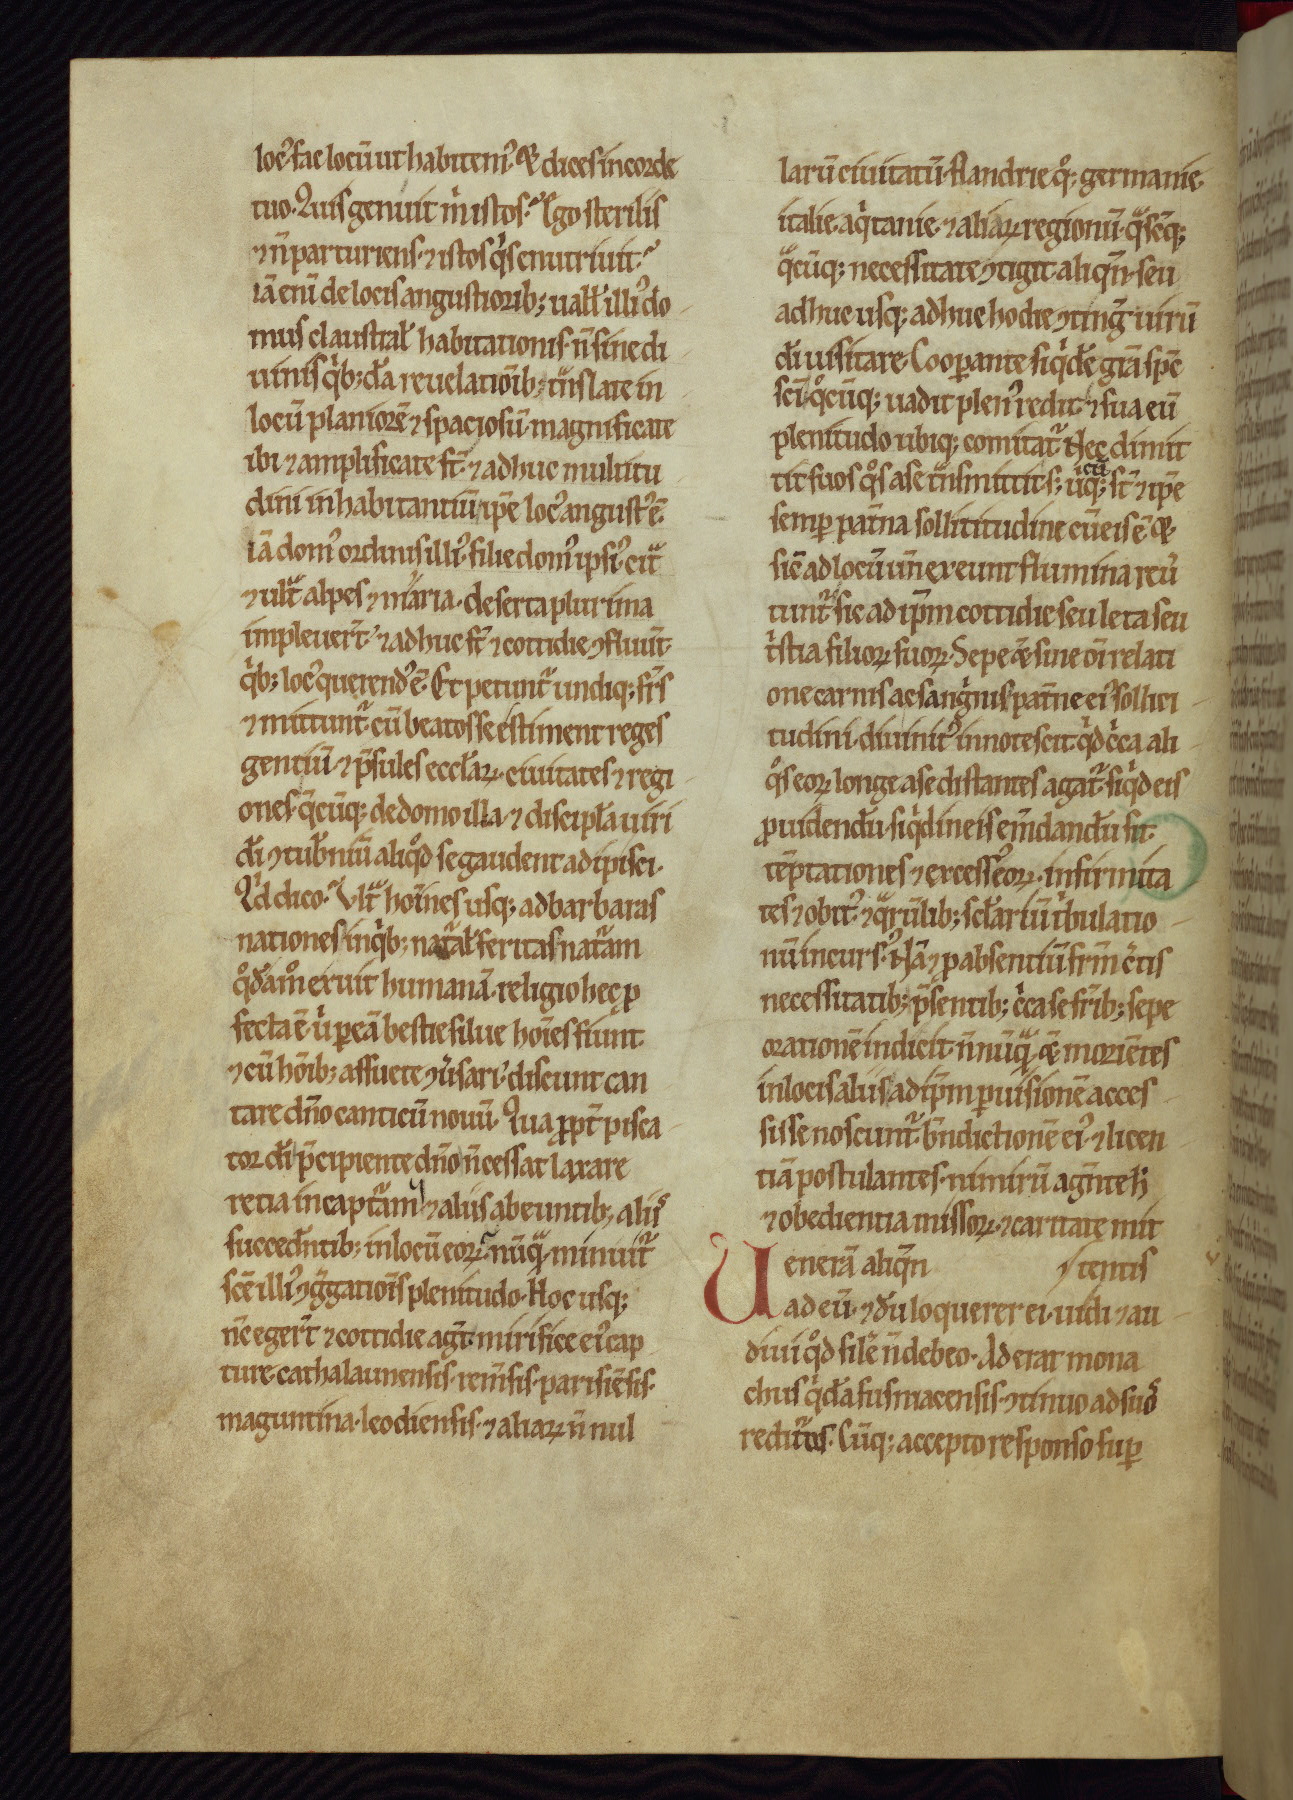 locꝰ. fac locū ut habitemꝰ. & dices in corde
tuo. Quis genuit m̄ istos? Ego sterilis
⁊ n̄ parturiens. ⁊ istos q̄s enutriuit?
iā enī de locis angustiorib; uall' illiꝰ do
mus claustral' habitationis. n̄ sine di
uinis q̄b;dā reuelatiōib; tn̄slate in
locū planiorē ⁊ spaciosū. magnificate
ibi ⁊ amplificate st̄. ⁊ adhuc multitu
dini inhabitantiū ip̄e locꝰ angustꝰ ē.
iā domꝰ ordinis illiꝰ. filie domꝰ ipsiꝰ. citͣ
⁊ ultͣ alpes ⁊ maria. deserta plurima
impleuer̄t. ⁊ adhuc st̄ ⁊ cottidie ꝯfluūt.
q̄b; locꝰ querendꝰ ē. Et petuntͬ undiq; frs̄
⁊ mittuntͬ. cū beatos se estiment reges
gentiū. ⁊ p̄sules eccl'aꝝ. ciuitates ⁊ regi
ones. q̄cūq; de domo illa. ⁊ discipl'a uiri
dī ꝯtub̄niū aliq̊d se gaudent adipisci.
Qd̄ dico? Vltͣ hoīnes usq; ad barbaras
nationes in q̄b; natͣal' feritas natͣam
q̊dāmͦ exuit humanā. religio hec ꝑ
fecta ē. ubi ꝑ eā bestie silue hoīes fiunt.
⁊ cū hoīb; assuete ꝯūsari. discunt can
tare dn̄o canticū nouū. Qua ꝓpt̄ pisca
tor dī p̄cipiente dn̄o n̄ cessat laxare
retia in captͣam. ⁊ aliis abeuntib; aliis
succedn̄tib; in locū eoꝝ. nūqͣ minuitͬ
scē illiꝰ ꝯgͣgatiōis plenitudo. Hoc usq;
nc̄ eger̄t ⁊ cottidie agt̄. mirifice eiꝰ cap
ture. cathalaunensis. rem̄sis. parisiēsis.
maguntina. leodiensis. ⁊ aliaꝝ n̄ nul
larū ciuitatū. flandrie q̊q; germanie.
italie. aq̄tanie. ⁊ aliaꝝ regionū. q̄sēq;
q̄cūq; necessitate ꝯtigit aliqn̄. seu
adhuc usq; adhuc hodie ꝯtinḡ uirū
dī uisitare. Cooꝑante siq̄dē gr̄a sp̄c
scī. q̊cūq; uadit plenꝰ redit. ⁊ sua eū
plenitudo ubiq; comitatͬ. Nec dimit
tit suos q̊s a se tn̄smittit. s; uͦq; st̄ ⁊ ip̄e
icti
semꝑ pat̄na sollititudine cū eis ē. &
sic ad locū un̄ exeunt flumina reū
tuntͬ. sic ad ip̄m cottidie seu leta seu
tristia filioꝝ suoꝝ. Sepe & sine oī relati
one carnis ac sangͥnis. pat̄ne eiꝰ sollici
tudini. diuinitꝰ innotescit. qͥd cͥca ali
q̊s eoꝝ longe a se distantes agatͬ. siqͥd eis
ꝓuidendū. siqͥd in eis em̄dandū sit.
tēptationes ⁊ excessꝰ eoꝝ. infirmita
tes ⁊ obitꝰ. ⁊ qͣrūlib; sel'ariū tͥbulatio
nū incursꝰ. Nā ⁊ ꝓ absentiū frm̄ cēis
necessitatib; p̄sentib; cͥca se frīb; sepe
orationē indicit. n̄ nūqͣ & moriētes
in locis aliis ad ip̄m ꝑ uisionē acces
sisse noscuntͬ. bn̄dictionē eiꝰ. ⁊ licen
tiā postulantes. nimirū agn̄te h̄
⁊ obedientia missoꝝ. ⁊ caritate mit
Venerā aliqn̄ tentis
ad eū. ⁊ dū loquerer ei. uidi ⁊ au
diui q̊d sile n̄ debeo. Aderat mona
chus qͥdā fusniacensis. ꝯtinuo ad suos
reditͬos. Cūq; accepto responso suꝑ